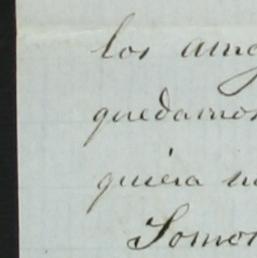 los amig
quedamos
quiera n
Somos